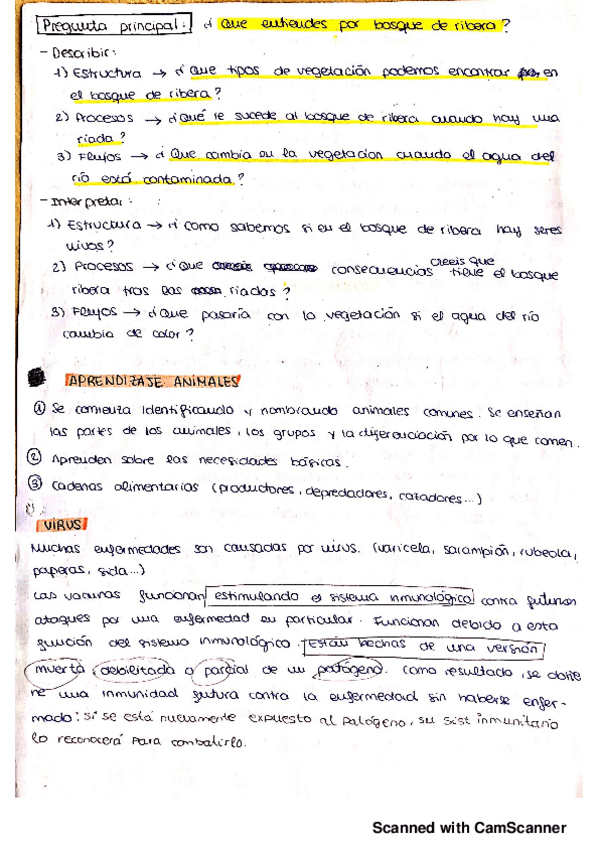 Pregunta principal: ¿Que entiendes por bosque de ribera?
- Describir:
1) Estructura → ¿Que tipos de vegetación podemos encontrar en
el bosque de ribera?
2) Procesos → ¿Qué le sucede al bosque de ribera cuando hay una
riada?
3) Flujos → ¿Que cambia en la vegetacion cuando el agua del
río está contaminada?
- Interpretar:
1) Estructura → ¿como sabemos si en el bosque de ribera hay seres
vivos?
2) Procesos → ¿Que consecuencias creeis que tiene el bosque
ribera tras las riadas?
3) Flujos → ¿Que pasaría con la vegetación si el agua del río
cambia de color?
APRENDIZAJE ANIMALES
① Se comienza identificando y nombrando animales comunes. Se enseñan
las partes de los animales, los grupos y la diferenciación por lo que comen.
② Aprenden sobre las necesidades básicas.
③ Cadenas alimentarias (productores, depredadores, cazadores...)
VIRUS
Muchas enfermedades son causadas por virus. (varicela, sarampión, rubeola,
paperas, sida...)
Las vacunas funcionan estimulando el sistema inmunológico contra futuros
ataques por una enfermedad en particular. Funcionan debido a esta
función del sistema inmunológico. Están hechas de una versión
muerta debilitada o parcial de un patógeno. Como resultado, se obtie
ne una inmunidad futura contra la enfermedad sin haberse enfer-
mado: si se está nuevamente expuesto al patógeno, su sist inmunitario
lo reconocerá para combatirlo.
Scanned with CamScanner